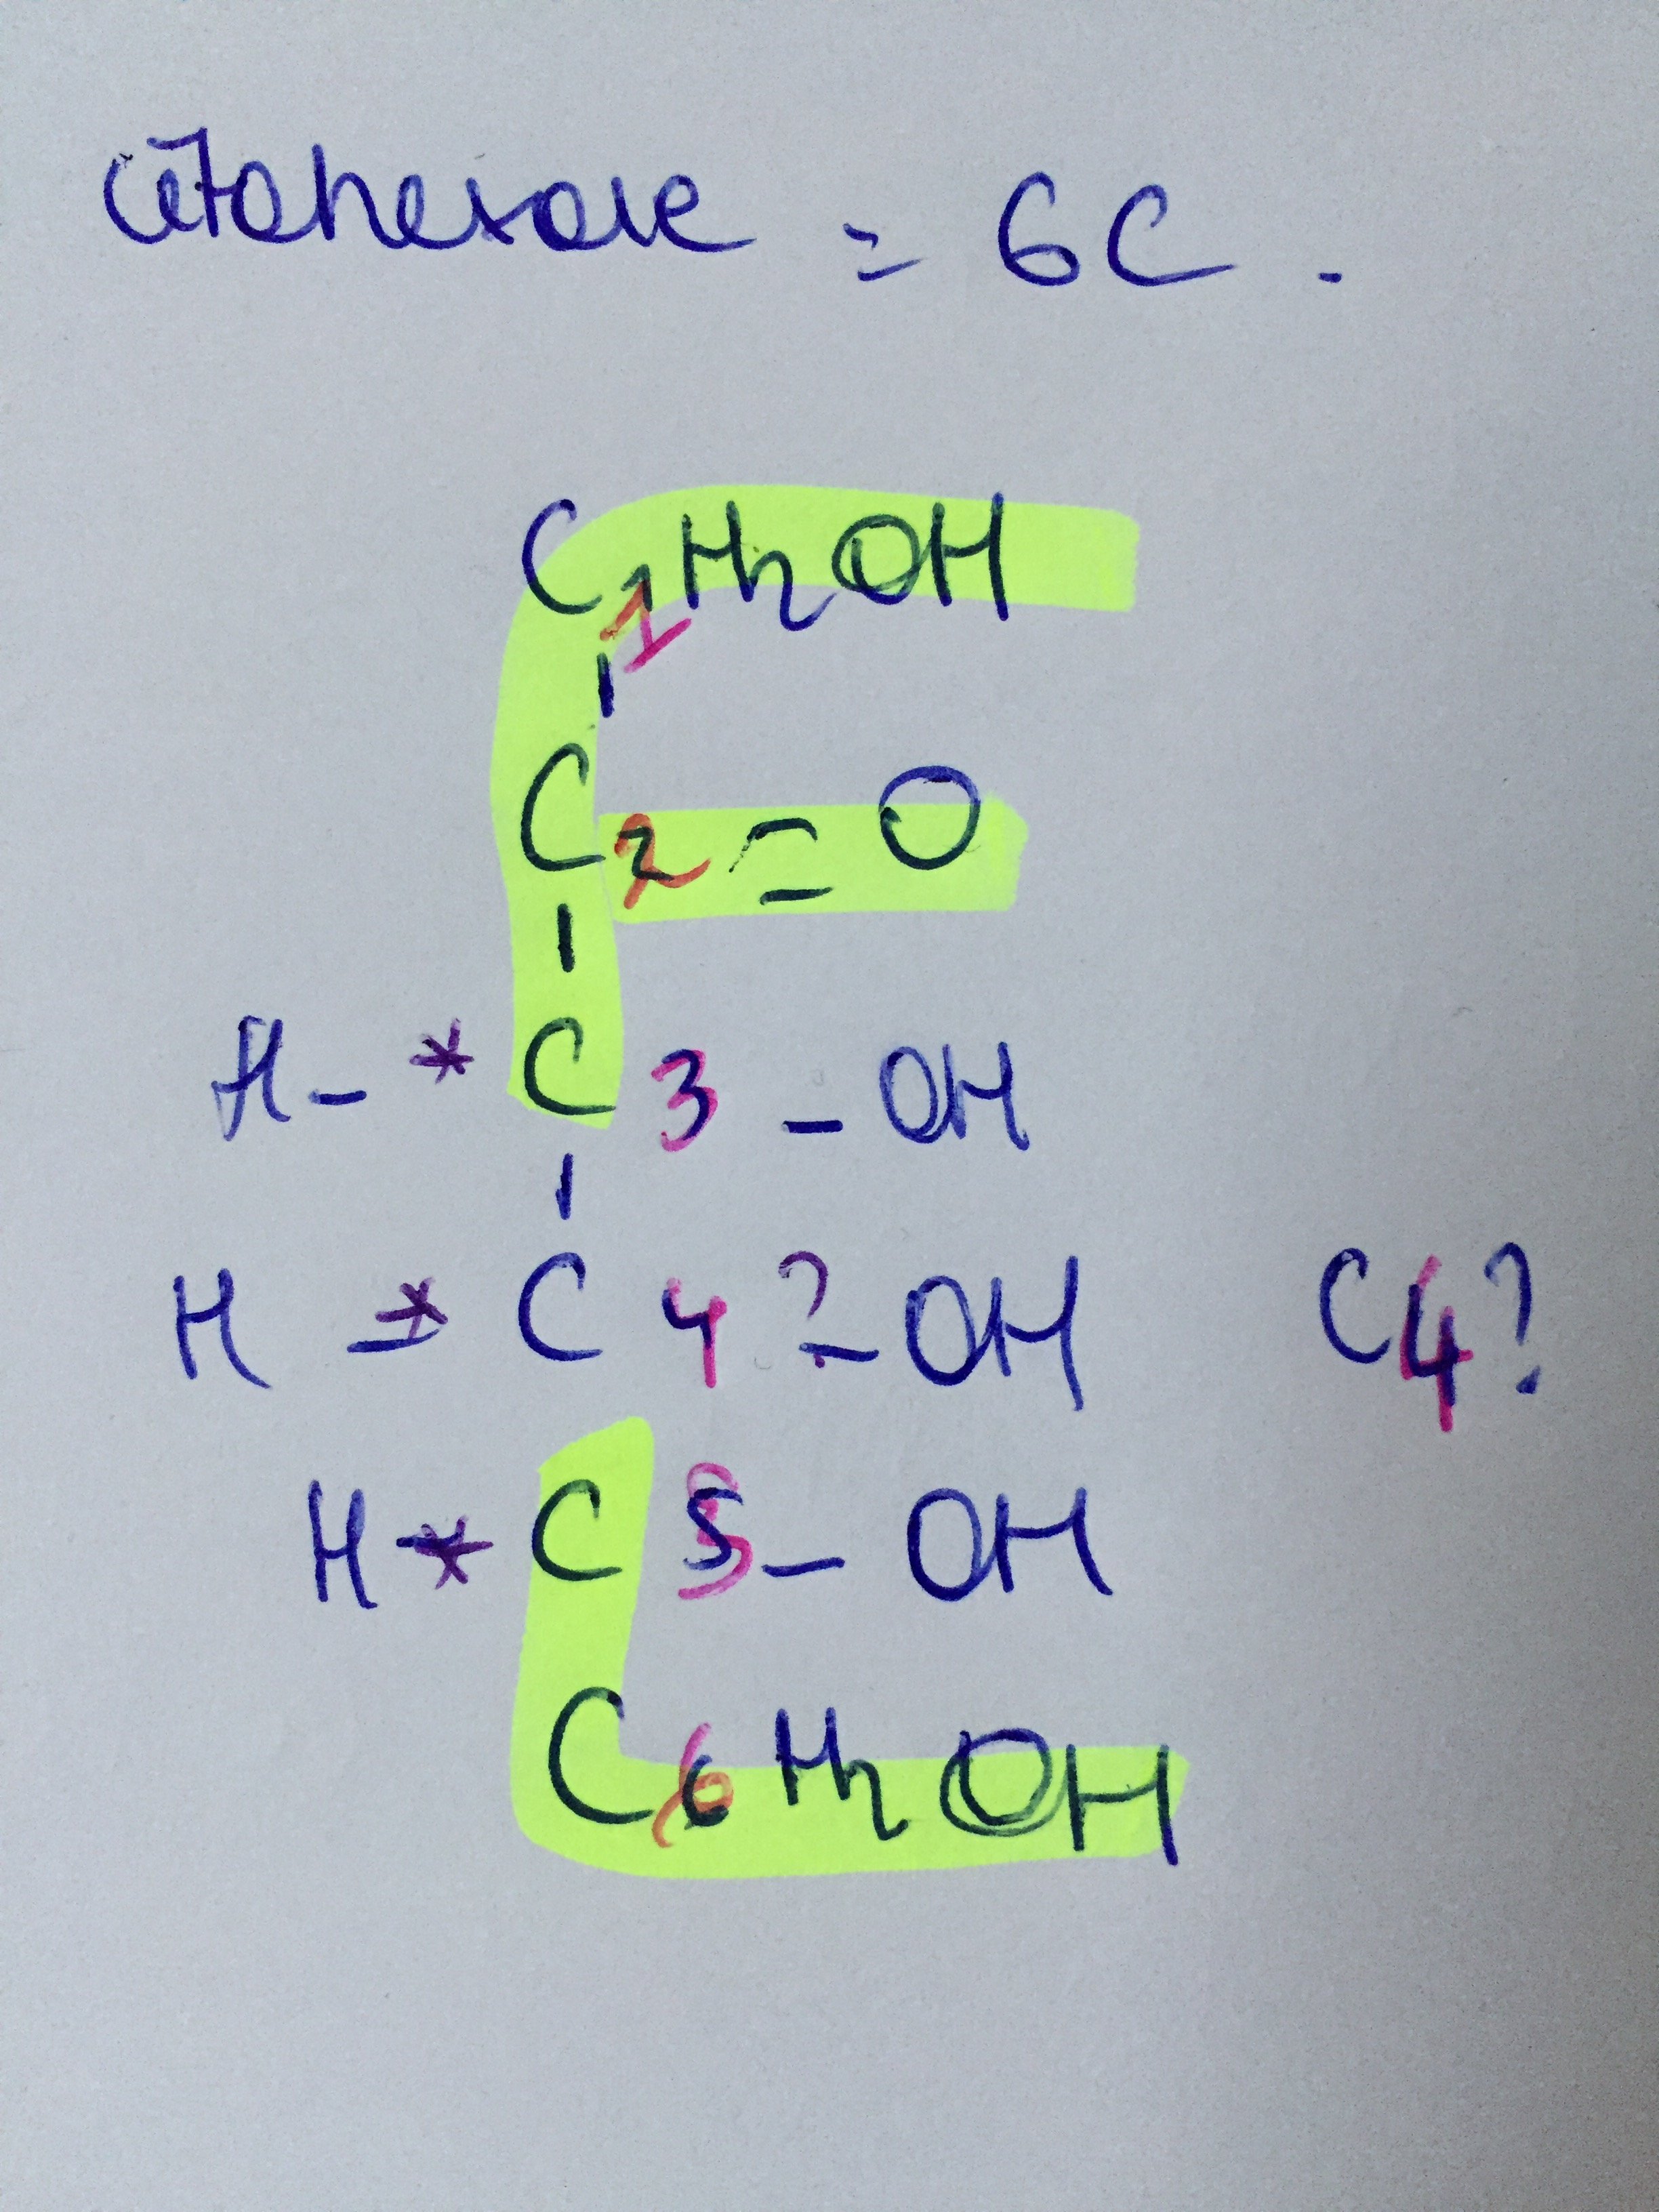 cétohexose = 6C.
C1H2OH
C2 = O
H - * C 3 - OH
H - * C 4 ? - OH C4?
H - * C 5 - OH
C6H2OH